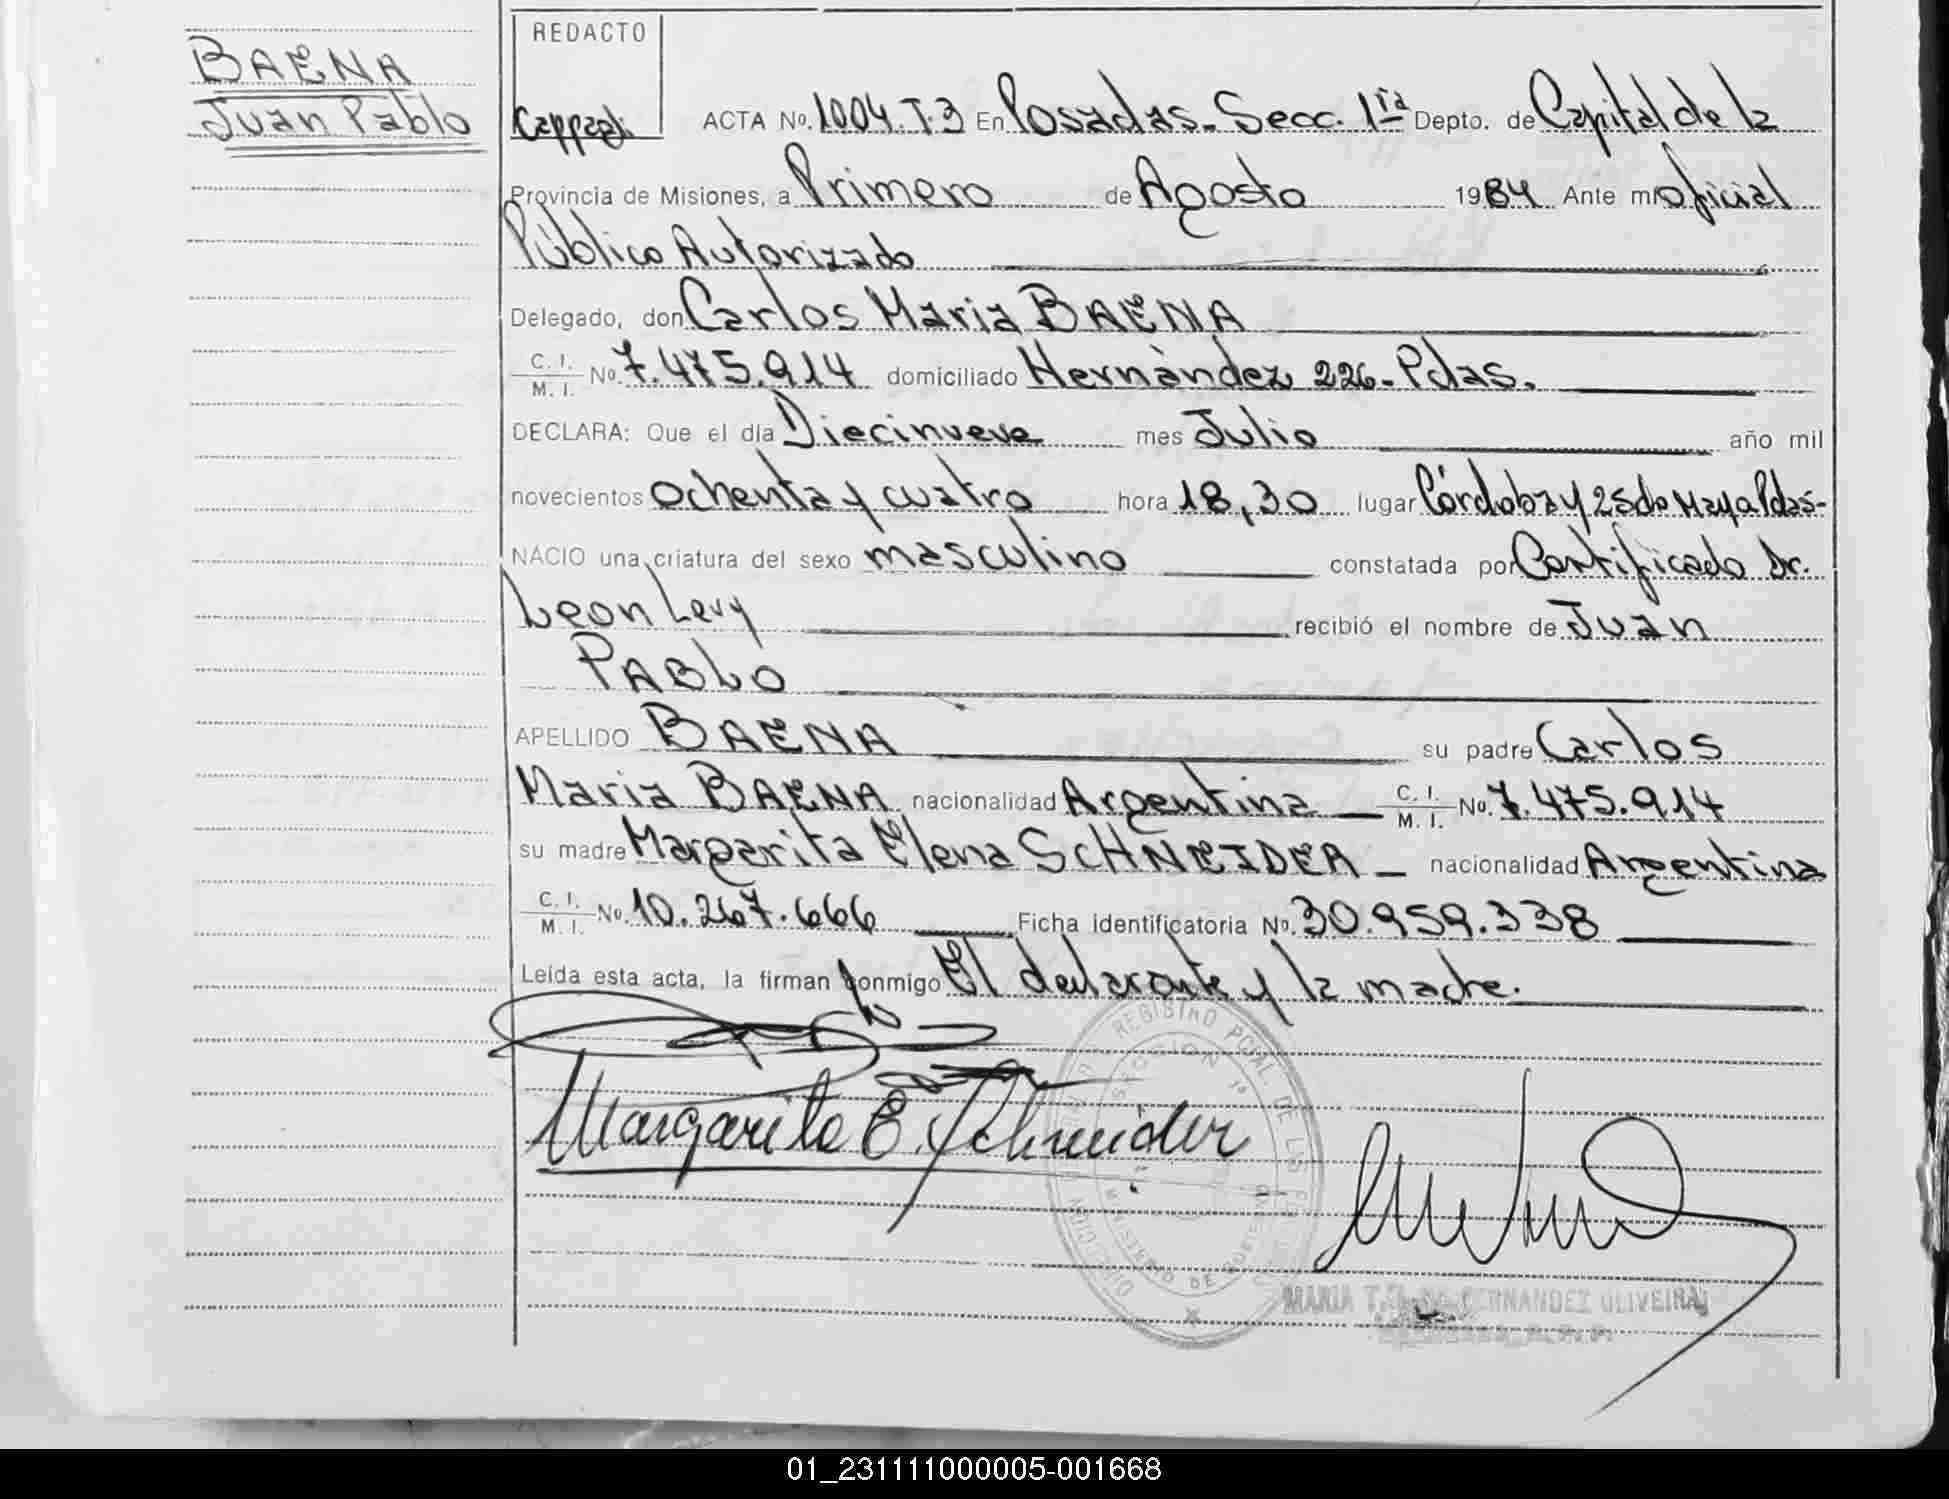 BAENA
Juan Pablo
REDACTO
Cappagli
ACTA No. 1004.T.3 En Posadas- Secc. 1ra Depto. de Capital de la
Provincia de Misiones, a Primero de Agosto 1984 Ante mí oficial
Público Autorizado
Delegado, don Carlos Maria BAENA
C. I. M. I. No. 7.475.914 domiciliado Hernàndez 226- Pdas.
DECLARA: Que el día Diecinueve mes Julio año mil
novecientos ochenta y cuatro hora 18,30 lugar Córdoba y 25 de Mayo Pdas-
NACIO una criatura del sexo masculino constatada por Certificado Dr.
Leon Levy recibió el nombre de Juan
PABLO
APELLIDO BAENA su padre Carlos
Maria BAENA nacionalidad Argentina C. I. M. I. No. 7.475.914
su madre Margarita Elena SCHNEIDER nacionalidad Argentina
C. I. M. I. No. 10.267.666 Ficha identificatoria No. 30.959.338
Leída esta acta, la firman conmigo El declarante y la madre.
Margarita E. Schneider
REGISTRO DE LAS
SECCION 1ª
MINISTERIO DE GOBIERNO
DIRECCION
MARIA T. FERNANDEZ OLIVEIRA
01_231111000005-001668